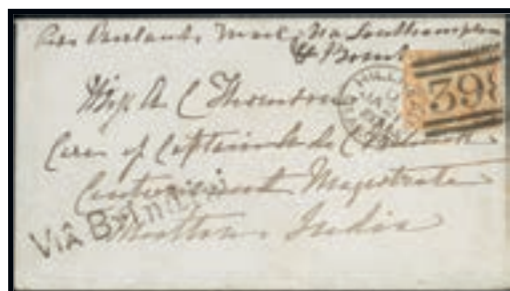 Per Overland Mail Via Southampton
& Bomb
Miss A C Thomson
Care of Captain
Cantonment Magistrate
Mooltan India
VIA BRINDISI
398